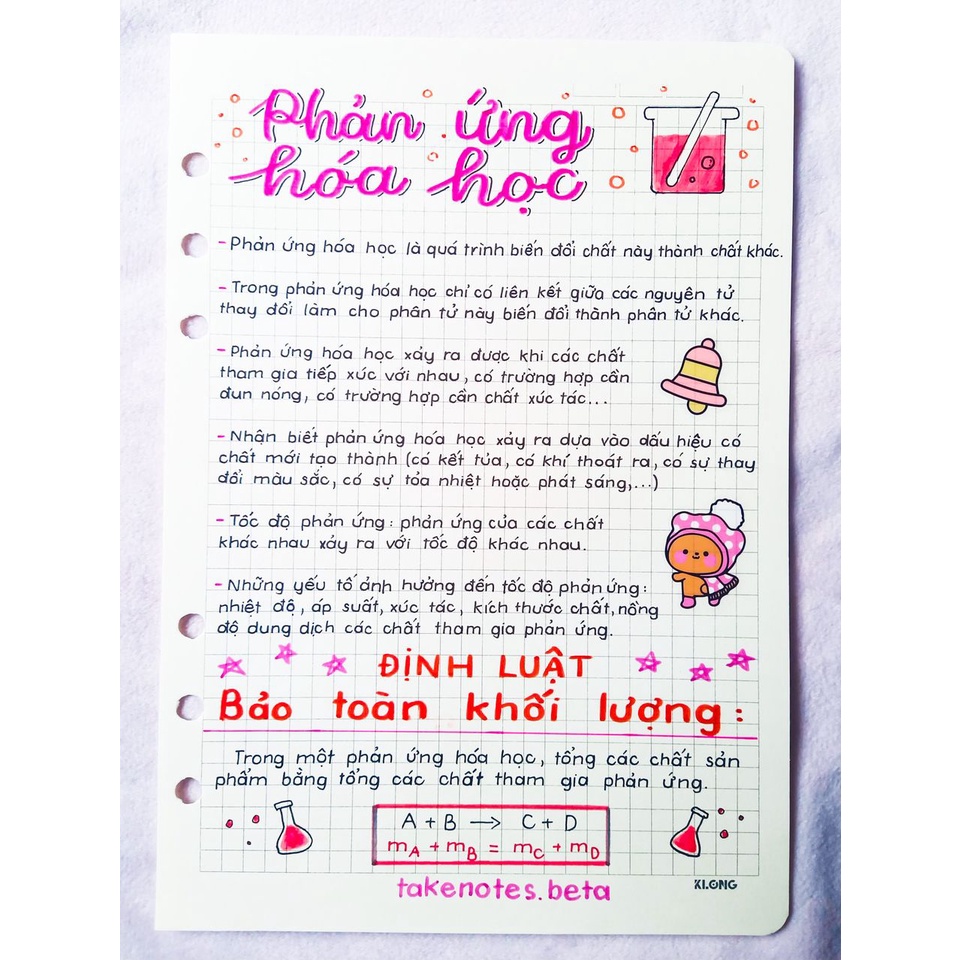 Phản ứng
hóa học
- Phản ứng hóa học là quá trình biến đổi chất này thành chất khác.
- Trong phản ứng hóa học chỉ có liên kết giữa các nguyên tử
thay đổi làm cho phân tử này biến đổi thành phân tử khác.
- Phản ứng hóa học xảy ra được khi các chất
tham gia tiếp xúc với nhau, có trường hợp cần
đun nóng, có trường hợp cần chất xúc tác...
- Nhận biết phản ứng hóa học xảy ra dựa vào dấu hiệu có
chất mới tạo thành (có kết tủa, có khí thoát ra, có sự thay
đổi màu sắc, có sự tỏa nhiệt hoặc phát sáng,...)
- Tốc độ phản ứng: phản ứng của các chất
khác nhau xảy ra với tốc độ khác nhau.
- Những yếu tố ảnh hưởng đến tốc độ phản ứng:
nhiệt độ, áp suất, xúc tác, kích thước chất, nồng
độ dung dịch các chất tham gia phản ứng.
ĐỊNH LUẬT
Bảo toàn khối lượng:
Trong một phản ứng hóa học, tổng các chất sản
phẩm bằng tổng các chất tham gia phản ứng.
A + B → C + D
mA + mB = mC + mD
takenotes.beta
KLONG